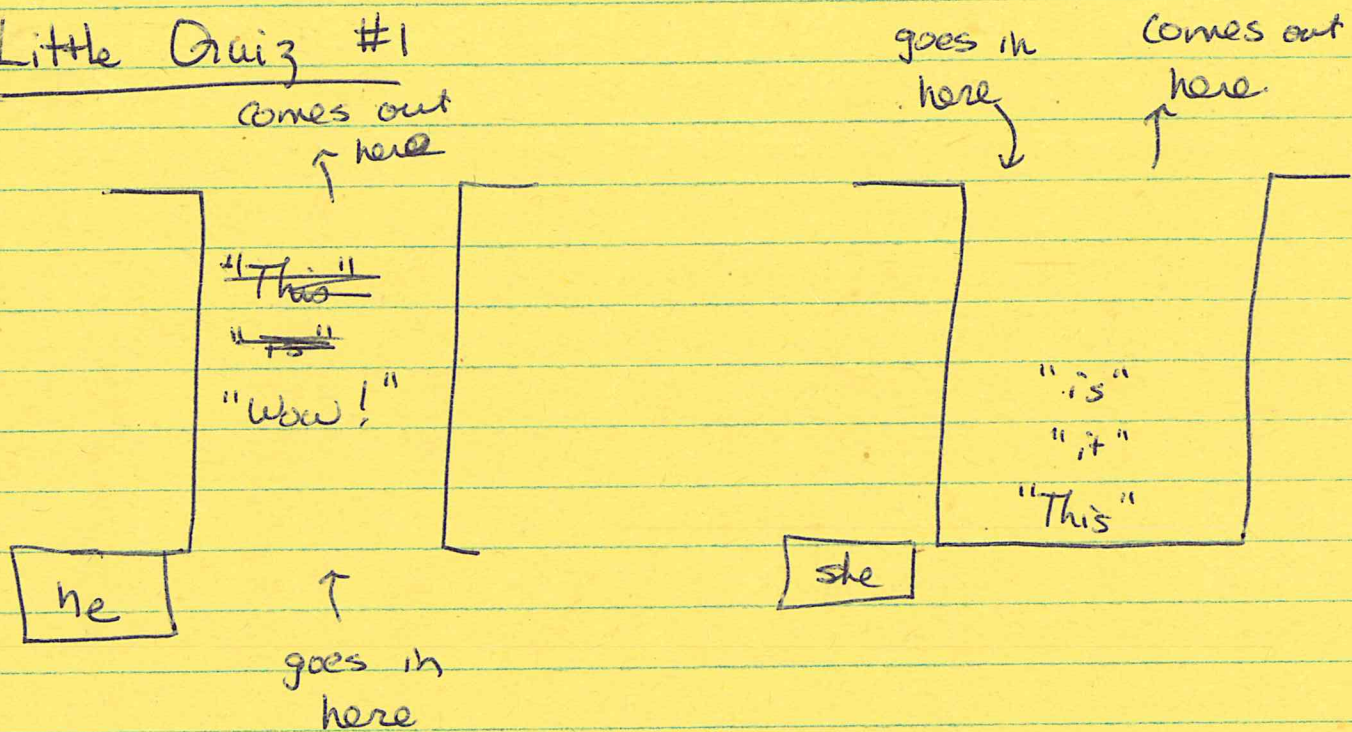 Little Quiz #1
comes out
here
"This"
"is"
"Wow!"
he
goes in
here
goes in
here
comes out
here
"is"
"it"
"This"
she